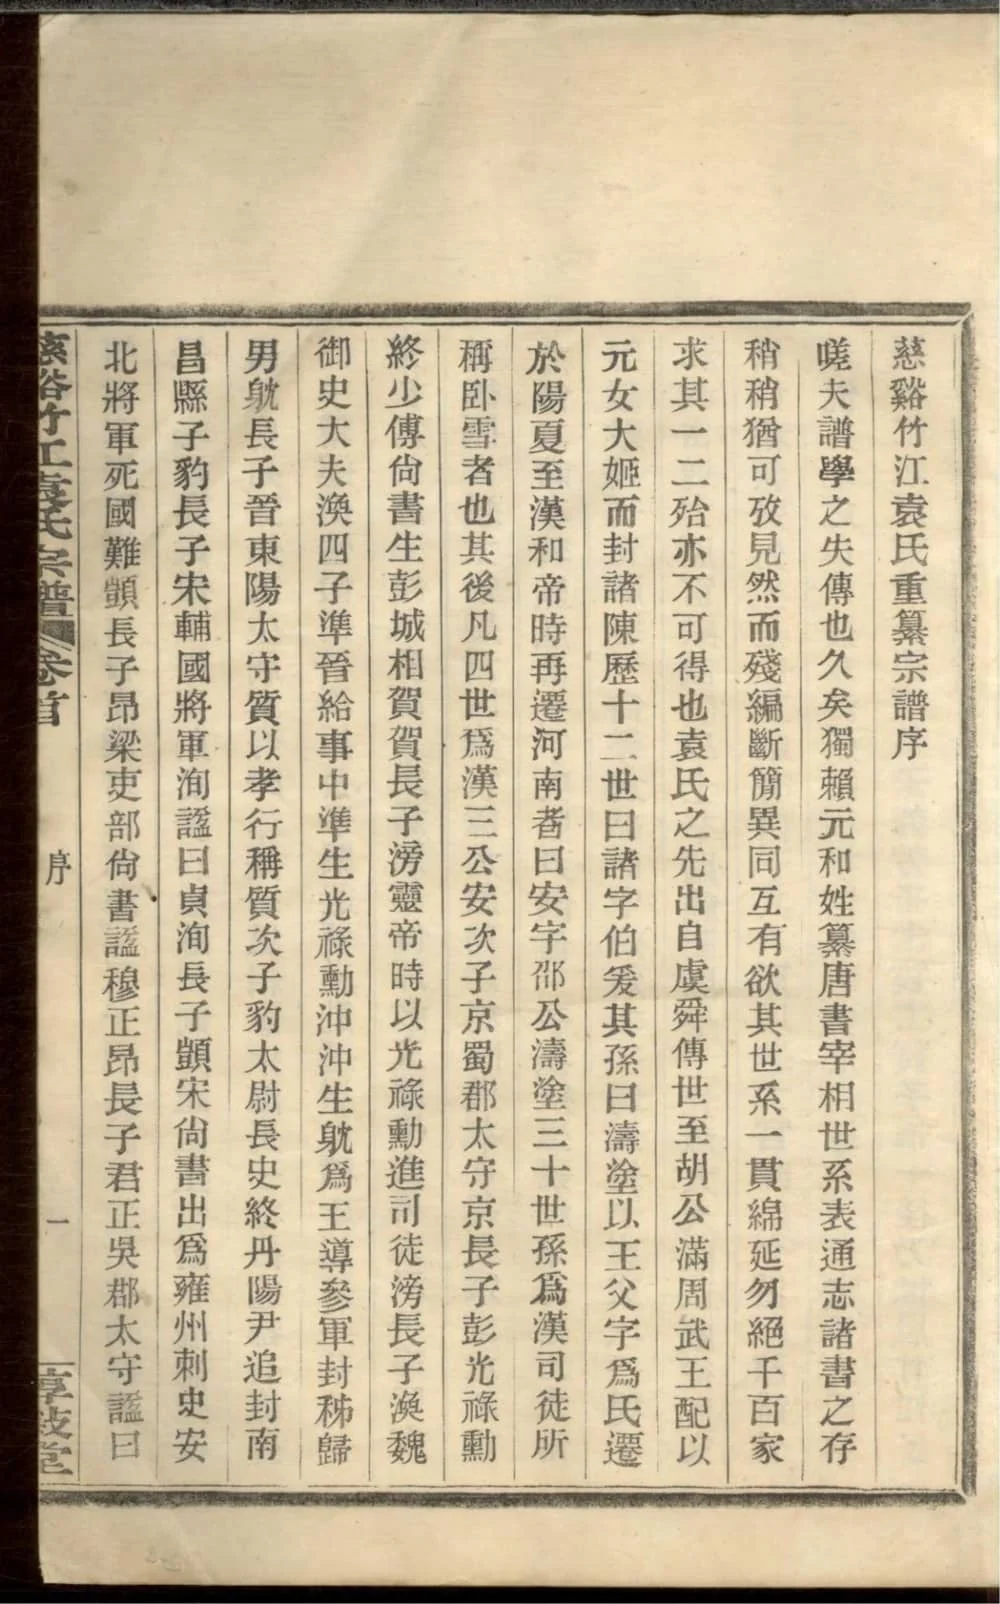 慈谿竹江袁氏重纂宗譜序
嗟夫譜學之失傳也久矣獨賴元和姓纂唐書宰相世系表通志諸書之存
稍稍猶可攷見然而殘編斷簡異同互有欲其世系一貫綿延勿絕千百家
求其一二殆亦不可得也袁氏之先出自虞舜傳世至胡公滿周武王配以
元女大姬而封諸陳歷十二世曰諸字伯爰其孫曰濤塗以王父字爲氏遷
於陽夏至漢和帝時再遷河南者曰安字邵公濤塗三十世孫爲漢司徒所
稱卧雪者也其後凡四世爲漢三公安次子京蜀郡太守京長子彭光祿勳
終少傅尙書生彭城相賀賀長子滂靈帝時以光祿勳進司徒滂長子渙魏
御史大夫渙四子準晉給事中準生光祿勳沖沖生躭爲王導參軍封秭歸
男躭長子晉東陽太守質以孝行稱質次子豹太尉長史終丹陽尹追封南
昌縣子豹長子宋輔國將軍洵諡曰貞洵長子顗宋尙書出爲雍州刺史安
北將軍死國難顗長子昂梁吏部尙書諡穆正昂長子君正吳郡太守諡曰
慈谿竹江袁氏宗譜 卷首 序 一